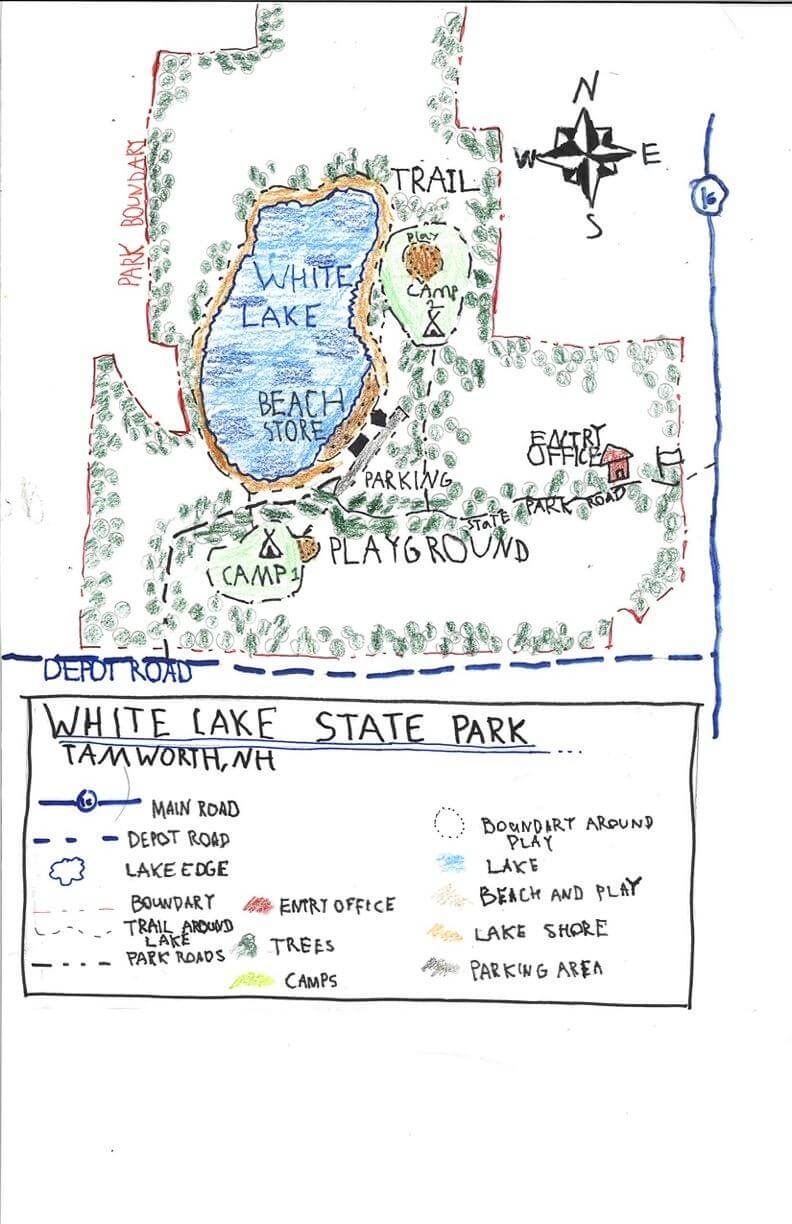 N
W E
S
16
TRAIL
PARK BOUNDARY
PLAY
CAMP
2
WHITE
LAKE
BEACH
STORE
PARKING
ENTRY
OFFICE
STATE PARK ROAD
PLAYGROUND
CAMP 1
DEPOT ROAD
WHITE LAKE STATE PARK
TAMWORTH, NH
16 MAIN ROAD
DEPOT ROAD
LAKE EDGE
BOUNDARY
TRAIL AROUND
LAKE
PARK ROADS
ENTRY OFFICE
TREES
CAMPS
BOUNDARY AROUND
PLAY
LAKE
BEACH AND PLAY
LAKE SHORE
PARKING AREA